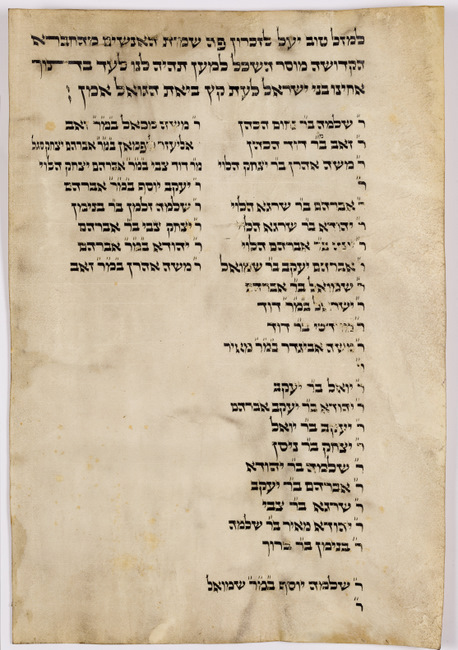 למזל טוב יעל לזכרון פה שמות האנשים מהחברא
הקדושה מוסר השכל למען תהיה לנו לעד בד תוך
אחינו בני ישראל לעת קץ ביאת הגואל אמן
ר״ שלמה בר נחום הכהן
ר״ זאב בר דוד הכהן
ר״ משה אהרן בר יצחק הלוי
ר״
ר״ אברהם בר שרגא הלוי
ר״ יהודא בר שרגא
ר״ אברהם הלוי
ר״ אברהם יעקב בר שמואל
ר״ שמואל בר אברהם
ר״ ישראל במו״ר דוד
ר״ בר דוד
ר״ משה אביגדר במו״ר מאיר
ר״
ר״ יואל בר יעקב
ר״ יהודא בר יעקב אברהם
ר״ יעקב בר יואל
ר״ יצחק בר ניסן
ר״ שלמה בר יהודא
ר״ אברהם בר יעקב
ר״ שרגא בר צבי
ר״ יהודא מאיר בר שלמה
ר״ בנימן בר ברוך
ר״ שלמה יוסף במו״ר שמואל
ר״
ר״ משה מכאל במו״ר זאב
אליעזר במו״ר אברהם
מו״ר דוד צבי במו״ר אברהם יצחק הלוי
ר״ יעקב יוסף במו״ר אברהם
ר״ שלמה זלמן בר בנימן
ר״ יצחק צבי בר אברהם
ר״ יהודא במו״ר אברהם
ר״ משה אהרן במו״ר זאב